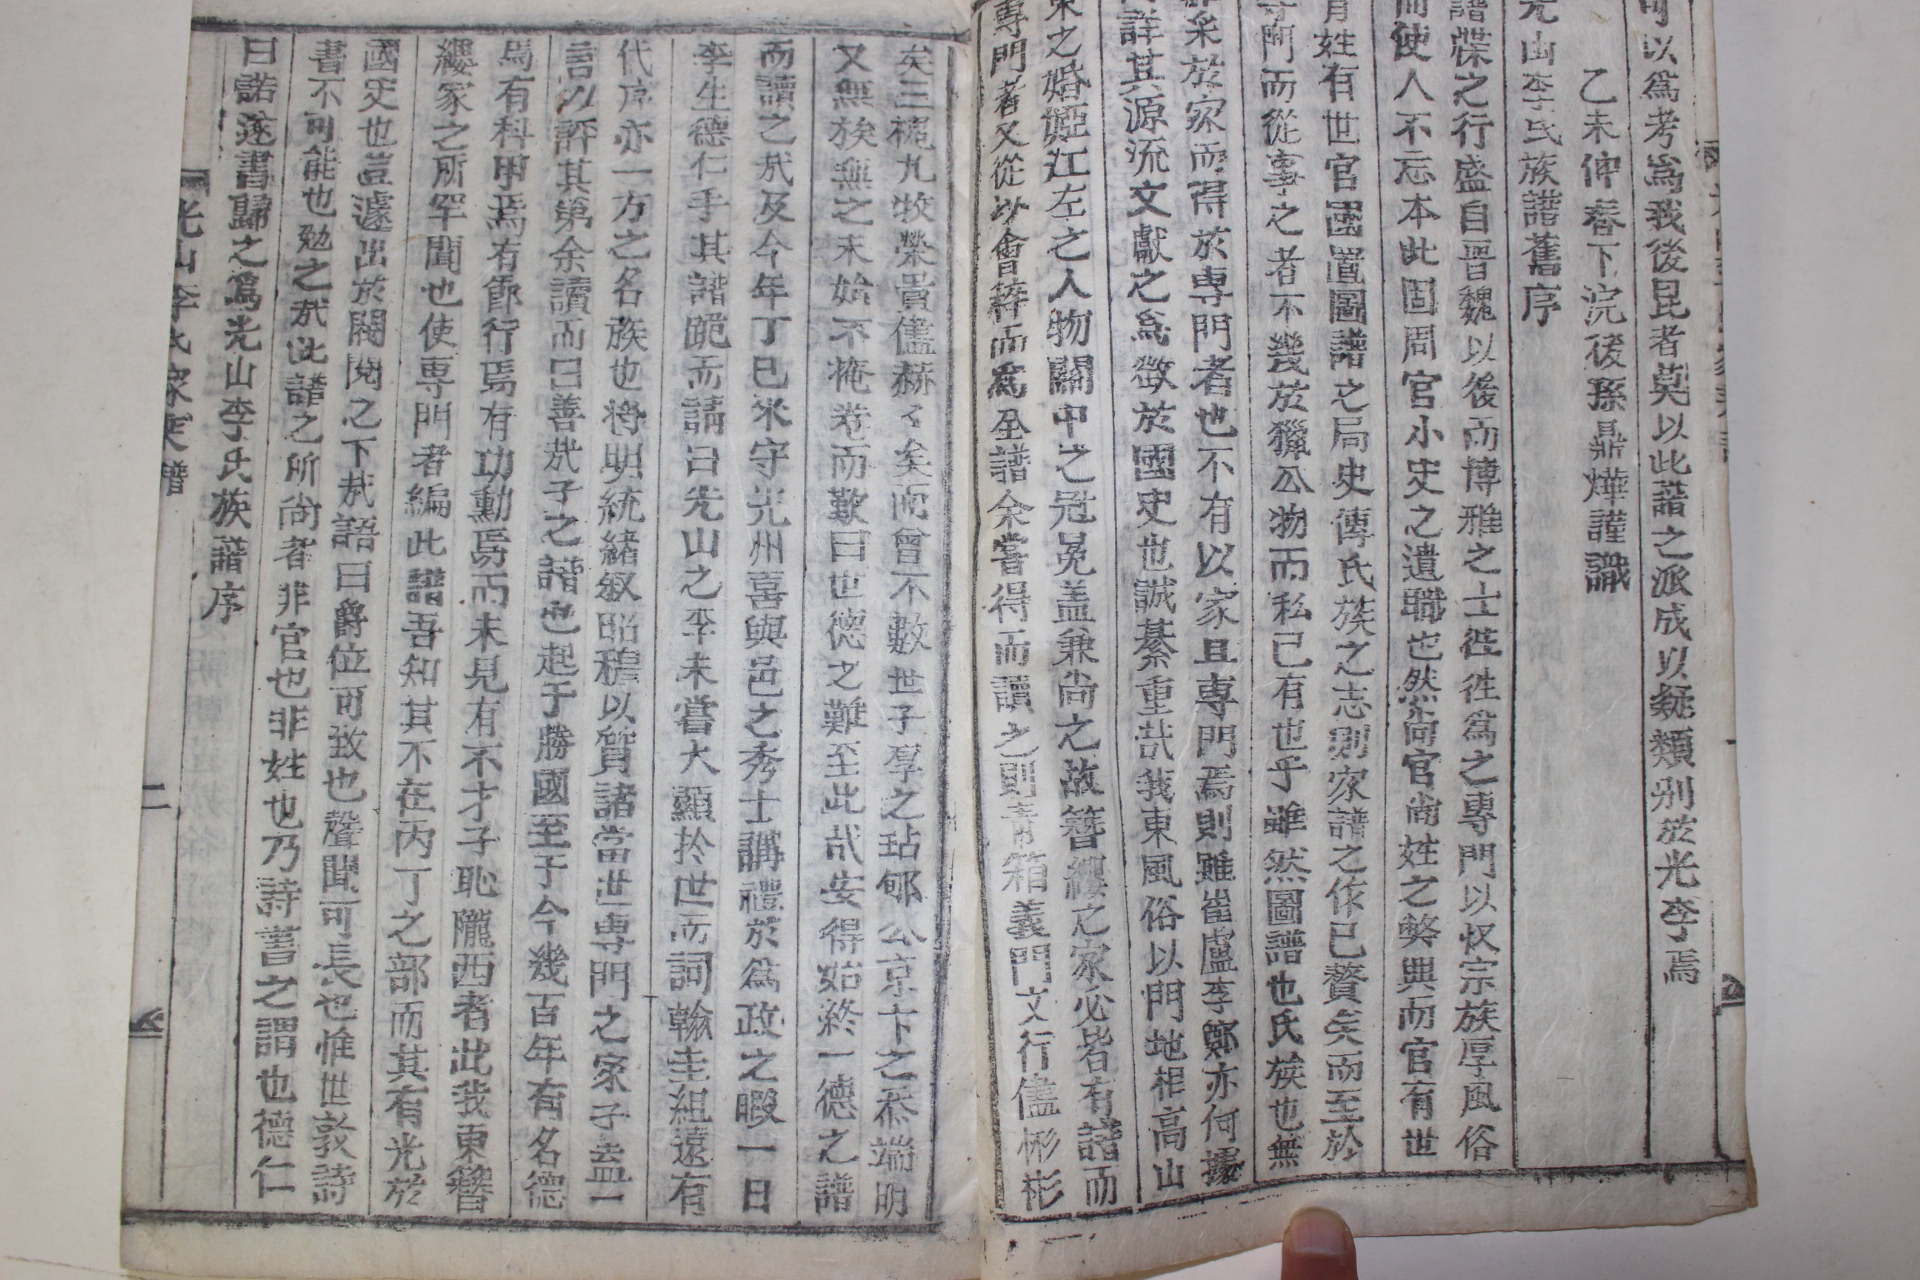 可以爲考爲我後昆者莫以此譜之派成以疑類別於光李焉
乙未仲春下浣後孫鼎燁謹識
光山李氏族譜舊序
譜牒之行盛自晉魏以後而博雅之士徃徃爲之專門以收宗族厚風俗
而使人不忘本此固周官小史之遺職也然尚官尚姓之弊興而官有世
胄姓有世官國置圖譜之局史傳氏族之志別家譜之作已贅矣而至於
專門而從事之者不幾於獵公物而私己有也乎雖然圖譜也氏族也無
非采於家而得於專門者也不有以家且專門焉則雖崔盧李鄭亦何據
詳其源流文獻之爲徵於國史也誠綦重哉我東風俗以門地相高山
東之婚婭江左之人物關中之冠冕盖兼尚之故簪纓之家必皆有譜而
專門者又從以會稡而爲全譜余嘗得而讀之則靑箱義門文行儘彬彬
矣三槐九牧榮貴儘赫々矣而曾不數世子孚之玷郇公京卞之忝端明
又無族無之未始不掩卷而歎曰世德之難至此哉安得始終一德之譜
而讀之哉及今年丁巳來守光州喜與邑之秀士講禮於爲政之暇一日
李生德仁手其譜眎而請曰光山之李未嘗大顯於世而詞翰圭組遠有
代序亦一方之名族也將明統緖叙昭穆以質諸當世專門之家子盍一
言以評其第余讀而曰善哉子之譜也起于勝國至于今幾百年有名德
焉有科甲焉有節行焉有功勳焉而未見有不才子恥隴西者此我東簪
纓家之所罕聞也使專門者編此譜吾知其不在丙丁之部而其有光於
國史也豈遽出於閥閱之下哉語曰爵位可致也聲聞可長也惟世敦詩
書不可能也勉之哉此譜之所尙者非官也非姓也乃詩書之謂也德仁
曰諾遂書歸之爲光山李氏族譜序
光山李氏家乘譜
二